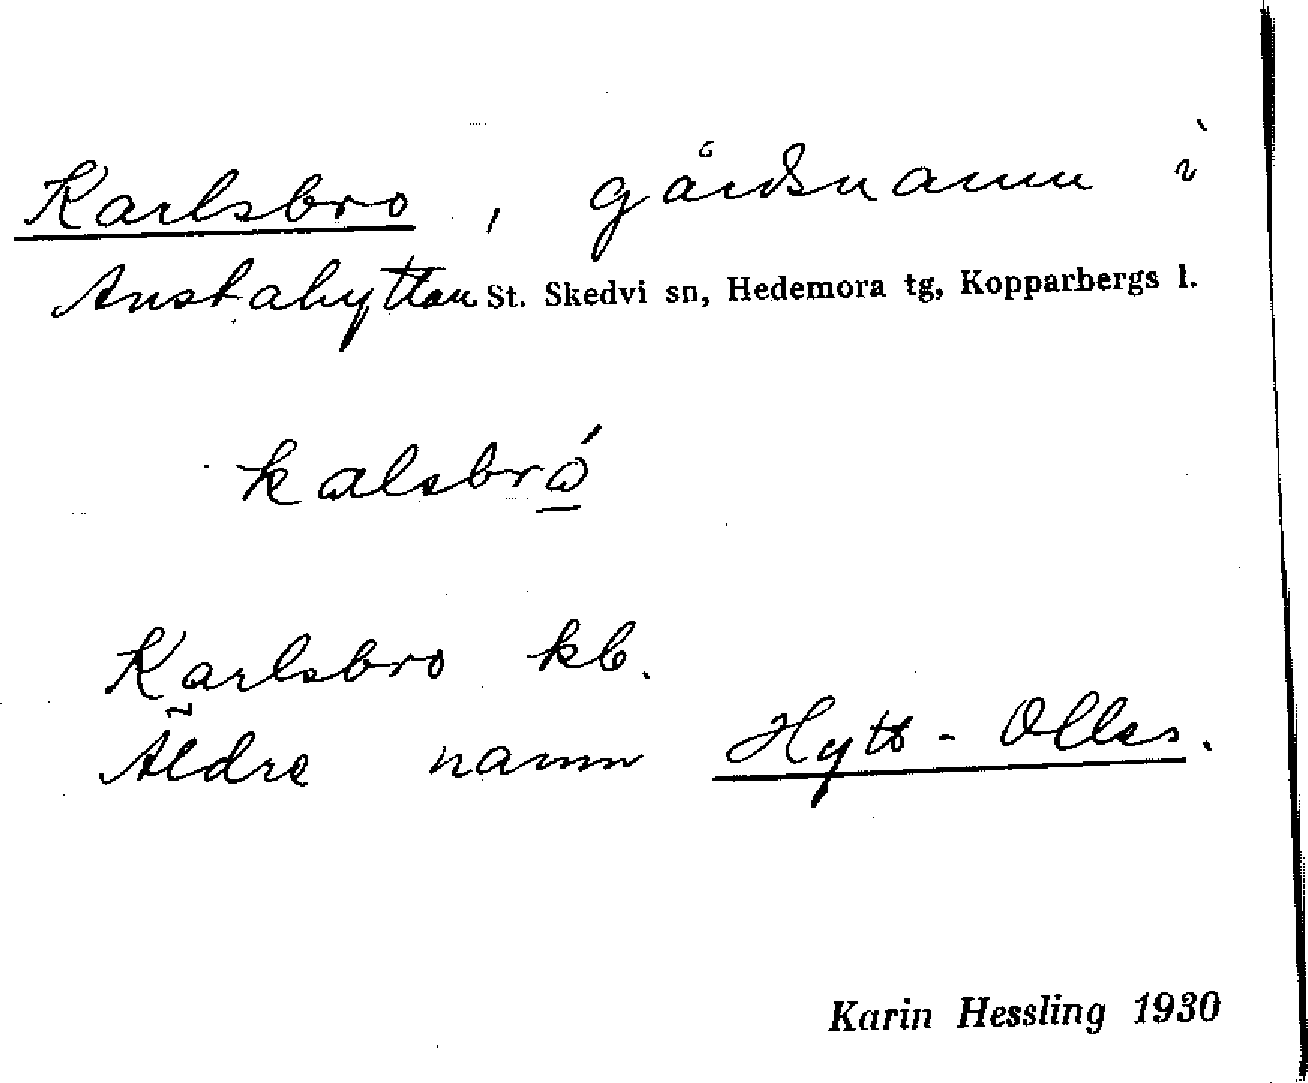 Karlsbro, gårdsnamn i
Anstahyttan St. Skedvi sn, Hedemora tg, Kopparbergs l.
kalsbró̲
Karlsbro kb.
Äldre namn Hytt-Olles.
Karin Hessling 1930